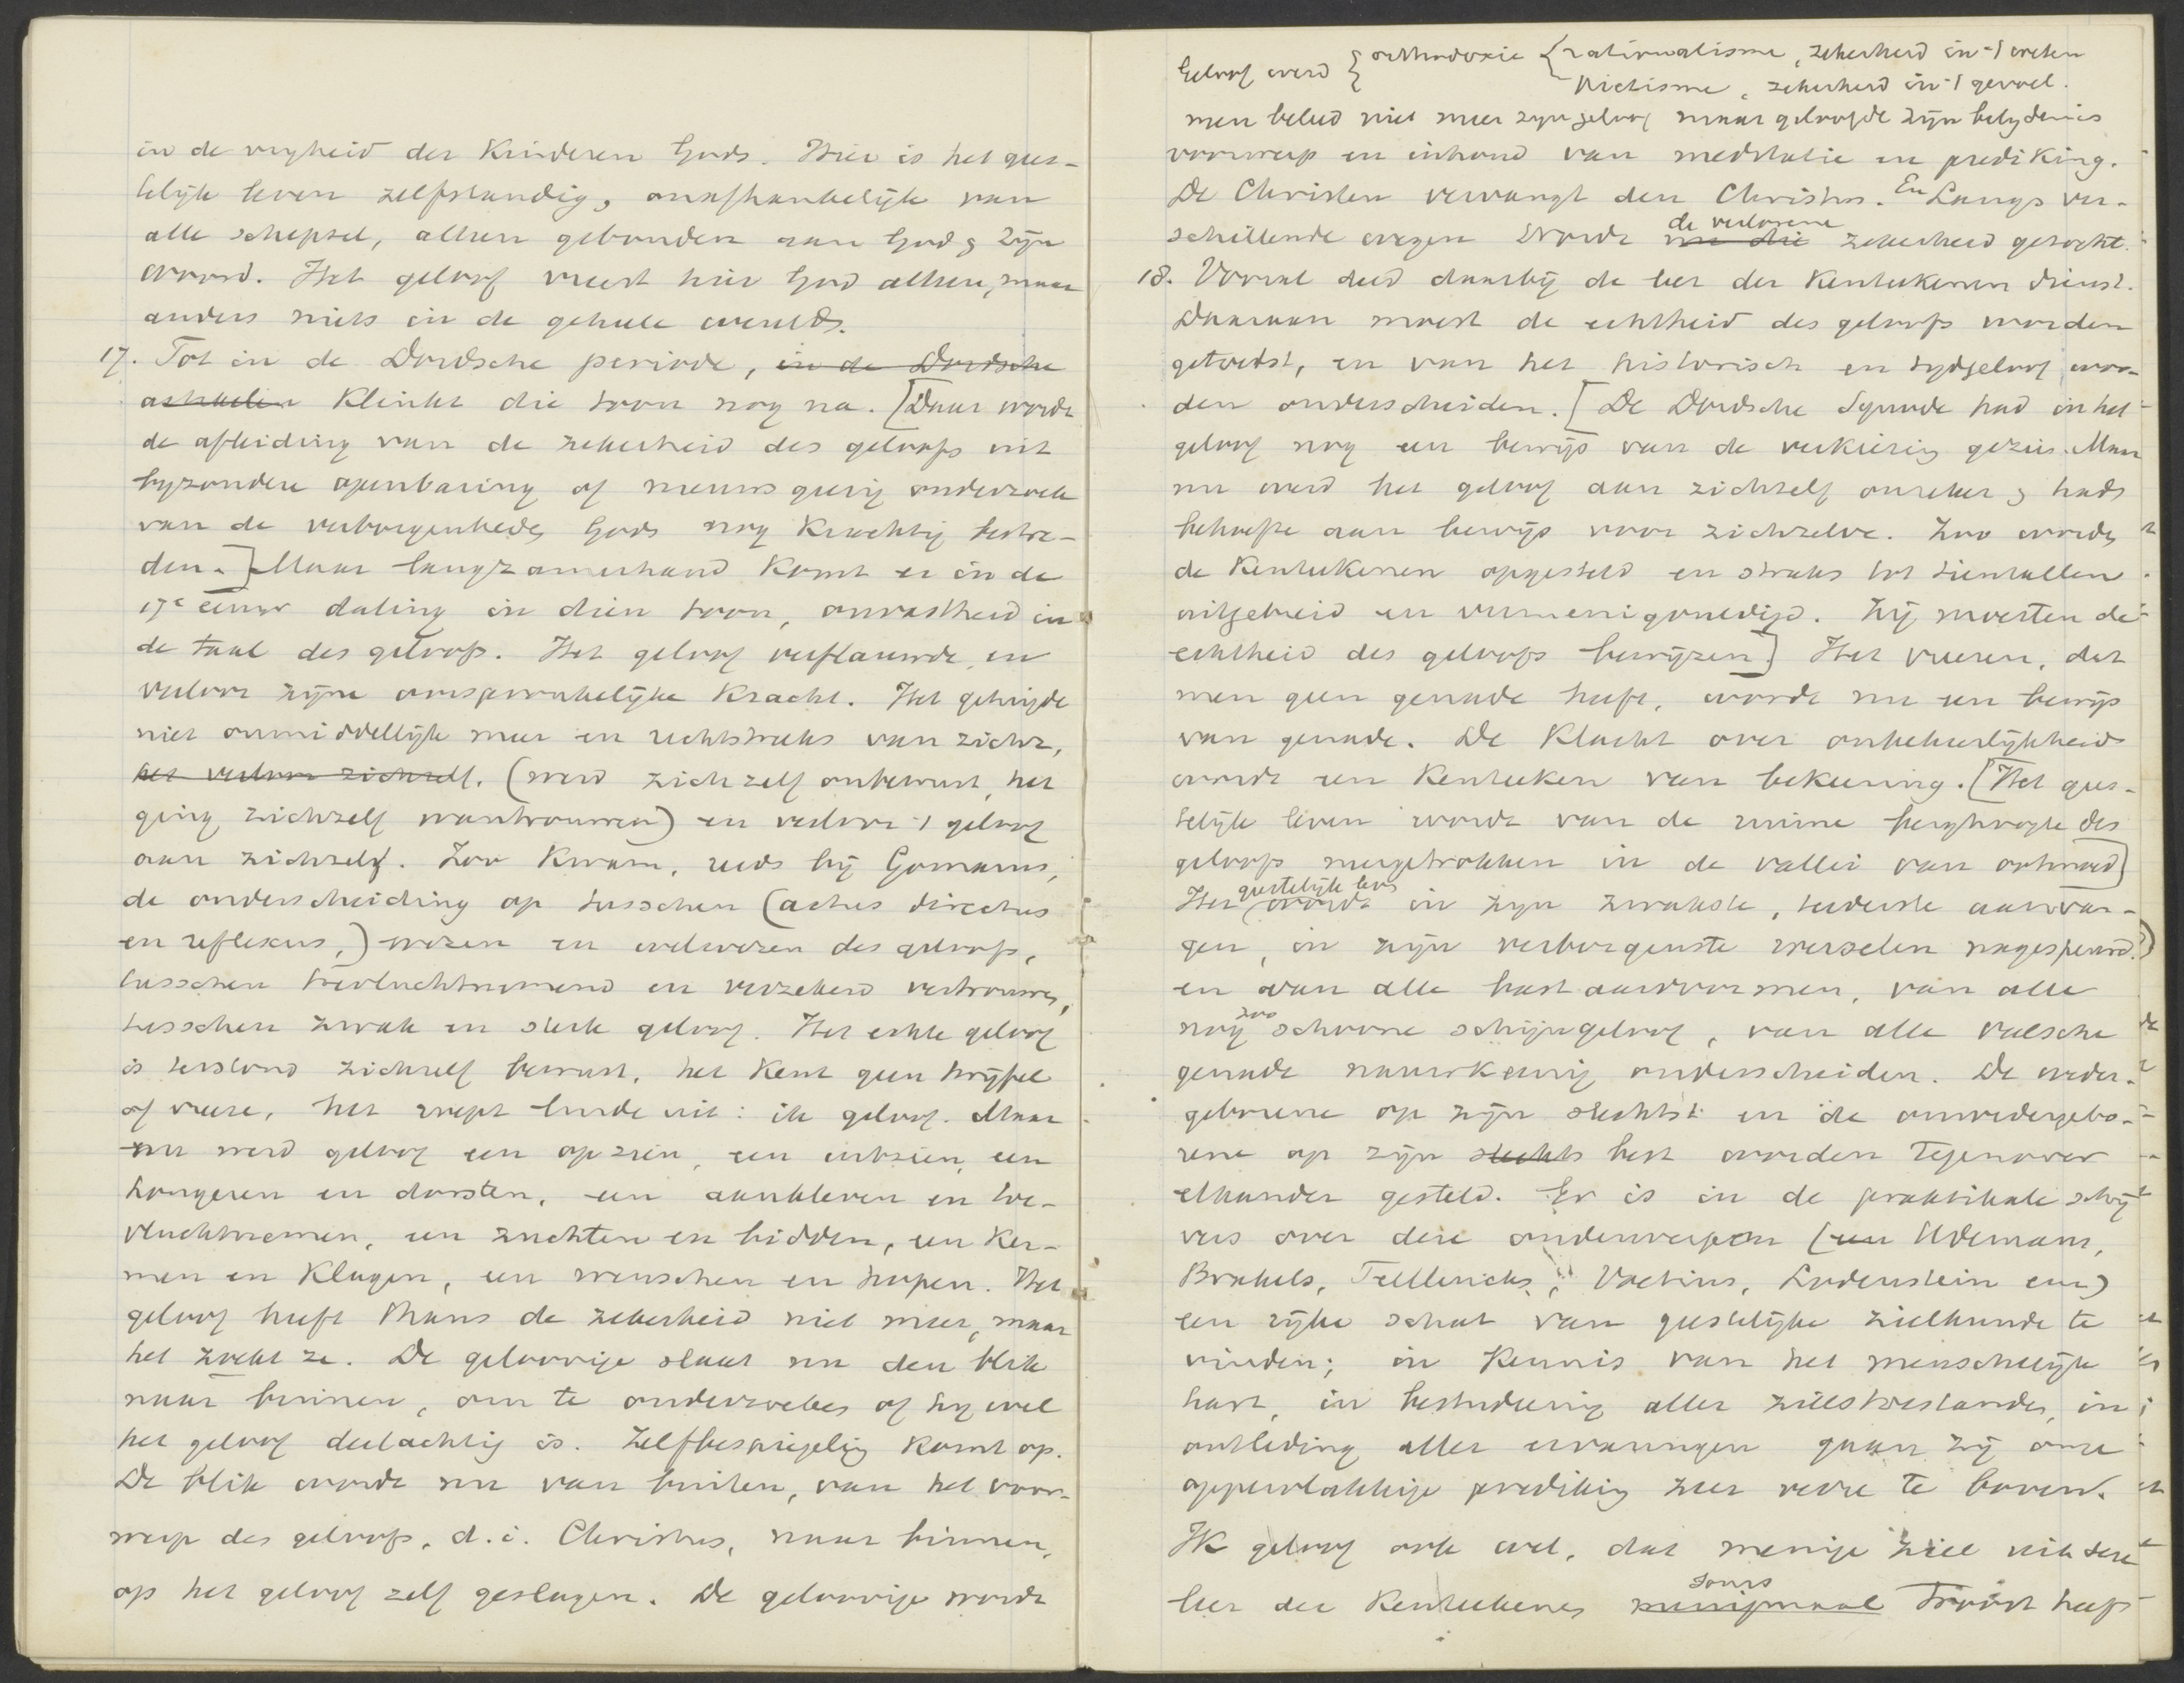 in de vryheid der Kinderen Gods. Hier is het gees-
telijk leven zelfstandig, onafhankelijk van
alle schepsel, alleen gebonden aan God & Zijn
woord. Het geloof vreest hier God alleen, maar
anders niets in de geheele wereld.
17. Tot in de Dordsche periode, in de Dordsche
Klinkt die toon nog na. [Daar wordt
de afleiding van de zekerheid des geloofs uit
byzondere openbaring of nieuwsgierig onderzoek
van de verborgenheden Gods nog Krachtig bestre-
den.] Maar langzamerhand Komt er in de
17e eeuw daling in dien toon, onvastheid in
de taal des geloofs. Het geloof verflauwde, en
verloor zijne oorspronkelijke Kracht. Het getuigde
niet onmiddellijk meer en rechtstreeks van zichz,
het verloor zichzelf. (werd zichzelf onbewust, het
ging zichzelf wantrouwen) en verloor 't geloof
aan zichzelf. Zoo Kwam, reeds bij Gomarus,
de onderscheiding op tusschen (actus directus
en reflexus,) wezen en welwezen des geloofs,
tusschen toevluchtnemend en verzekerd vertrouwen,
tusschen zwak en sterk geloof. Het echte geloof
is terstond zichzelf bewust, het Kent geen twijfel
of vreeze, het roept luide uit: ik geloof. Maar
nu werd geloof een opzien, een uitzien, een
hongeren en dorsten, een aankleven en toe-
vluchtnemen, een zuchten en bidden, een Ker-
men en Klagen, een wenschen en hopen. Het
geloof heeft thans de zekerheid niet meer, maar
het zoekt ze. De geloovige slaat nu den blik
naar binnen, om te onderzoeken of hy wel
het geloof deelachtig is. Zelfbespiegeling Komt op.
De blik wordt nu van buiten, van het voor-
werp des geloofs, d.i. Christus, naar binnen,
op het geloof zelf geslagen. De geloovige wordt
Geloof werd { orthodoxie { rationalisme, zekerheid in 't weten
Pietisme, zekerheid in 't gevoel.
men beleed niet meer zyn geloof maar geloofde zijn belydenis
voorwerp en inhoud van meditatie en prediking.
De Christen vervangt den Christus. En Langs ver-
schillende wegen wordt de verlorene zekerheid gezocht.
18. Vooral deed daarbij de leer der Kenteekenen dienst.
Daaraan moest de echtheid des geloofs worden
getoetst, en van het historisch en tydgeloof wor-
den onderscheiden. [De Dordsche Synode had in het
geloof nog een bewijs van de verkiezing gezien. Maar
nu werd het geloof aan zichzelf onzeker & had
behoefte aan bewijs voor zichzelve. Zoo worden
de Kenteekenen opgesteld en straks tot tientallen
uitgebreid en vermenigvuldigd. Zij moesten de
echtheid des geloofs bewijzen] Het vreezen, dat
men geen genade heeft, wordt nu een bewijs
van genade. De Klacht over onbekeerlijkheid
wordt een Kenteeken van bekeering. [Het gees-
telijk leven wordt van de ruime berghoogte des
geloofs neergetrokken in de vallei van ootmoed]
Het geestelijk leven wordt in zyn zwakste, teederste aanvan-
gen, in zijn verborgenste wortelen nagespeurd.)
en van alle bastaardvormen, van alle
nog zoo schoone schijngeloof, van alle valsche
genade nauwkeurig onderscheiden. De weder-
geborene op zijn slechtst en de onwedergebo-
rene op zijn slechts best worden tegenover
elkander gesteld. Er is in de praktikale schrij
vers over deze onderwerpen (een Udemans,
Brakels, Teellincks, Voetius, Lodenstein enz)
een rijke schat van geestelijke zielkunde te
vinden; in Kennis van het menschelijk
hart, in bestudeering aller zielstoestanden, in
ontleding aller ervaringen gaan zij onze
oppervlakkige prediking zeer verre te boven.
Ik geloof ook wel, dat menige ziel uit deze
leer der Kenteekenen menigmaal soms Troost heeft